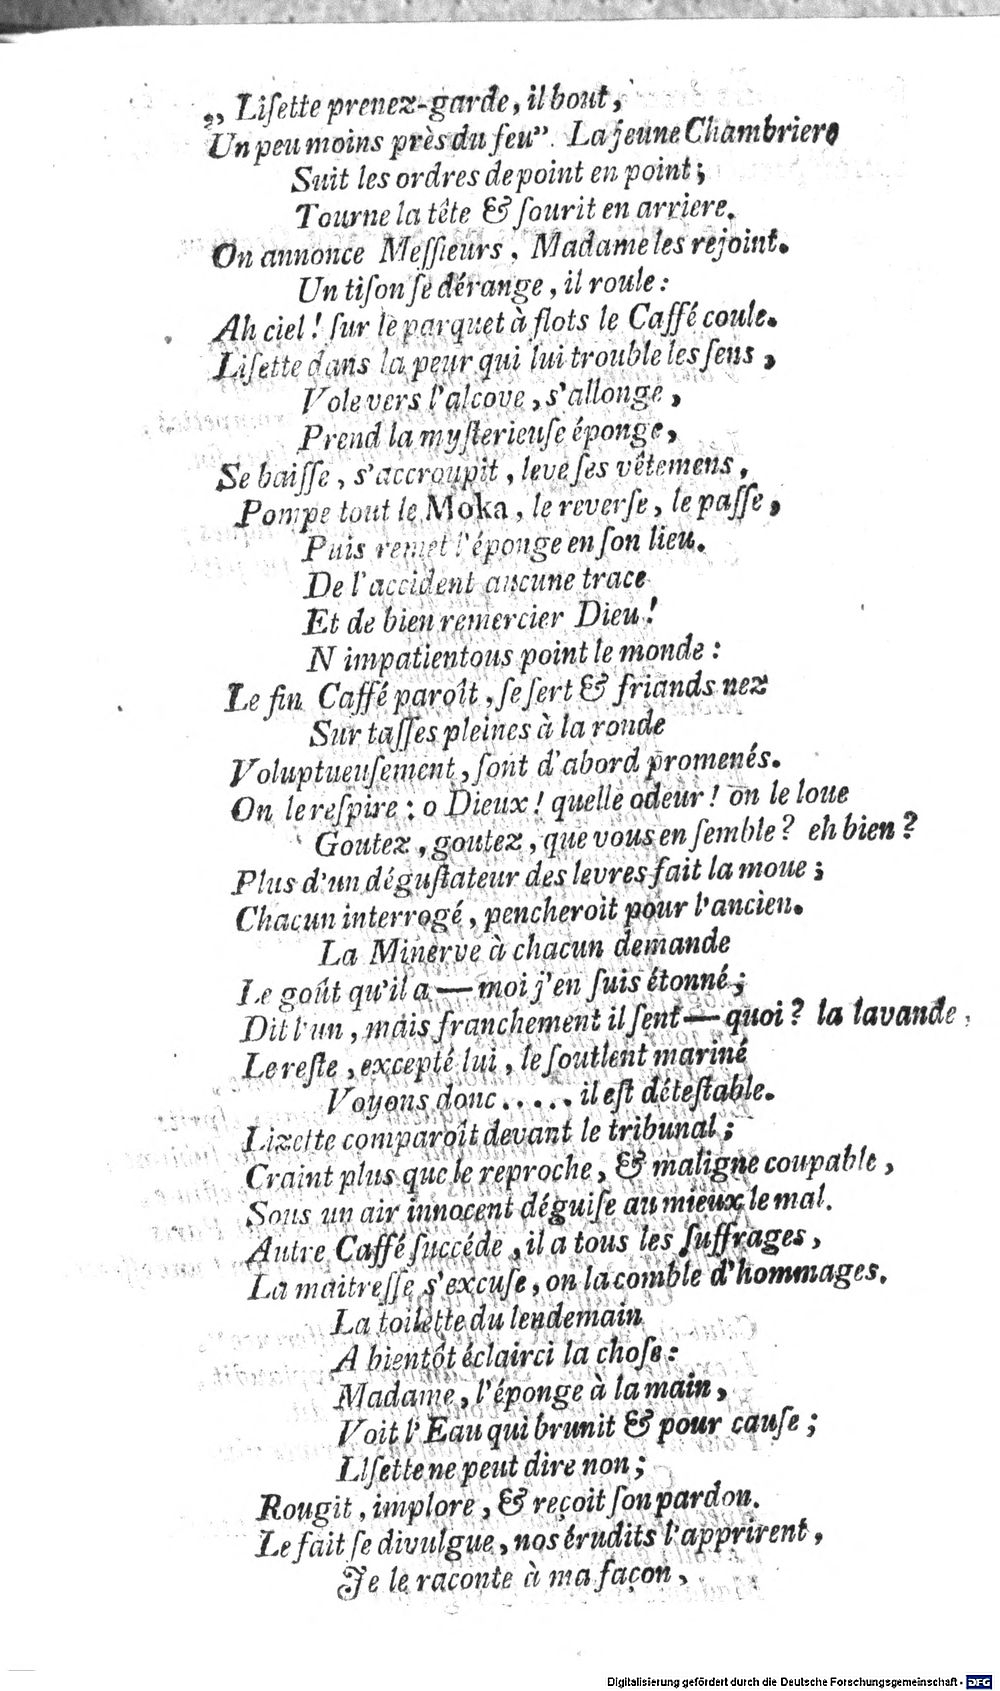 „ Liſette prenez-garde, il bout,
Un peu moins près du feu”. La jeune Chambriere
Suit les ordres de point en point;
Tourne la tête & ſourit en arriere.
On annonce Meſſieurs, Madame les rejoint.
Un tiſon ſe dérange, il roule:
Ah ciel! ſur le parquet à flots le Caffé coule.
Liſette dans la peur qui lui trouble les ſens,
Vole vers l'alcove, s'allonge,
Prend la myſterieuſe éponge,
Se baiſſe, s'accroupit, leve ſes vêtemens,
Pompe tout le Moka, le reverſe, le paſſe,
Puis remet l'éponge en ſon lieu.
De l'accident aucune trace
Et de bien remercier Dieu!
N impatientous point le monde:
Le fin Caffé paroît, ſe ſert & friands nez
Sur taſſes pleines à la ronde
Voluptueuſement, ſont d'abord promenés.
On le reſpire: o Dieux! quelle odeur! on le loue
Goutez, goutez, que vous en ſemble? eh bien?
Plus d'un déguſtateur des levres fait la moue;
Chacun interrogé, pencheroit pour l'ancien.
La Minerve à chacun demande
Le goût qu'il a — moi j'en ſuis étonné;
Dit l'un, mais franchement il ſent — quoi? la lavande,
Le reſte, excepté lui, le ſoutient mariné
Voyons donc ..... il eſt déteſtable.
Lizette comparoît devant le tribunal;
Craint plus que le reproche, & maligne coupable,
Sous un air innocent déguiſe au mieux le mal.
Autre Caffé ſuccéde, il a tous les ſuffrages,
La maitreſſe s'excuſe, on la comble d'hommages.
La toilette du lendemain
A bientôt éclairci la choſe:
Madame, l'éponge à la main,
Voit l'Eau qui brunit & pour cauſe;
Liſette ne peut dire non;
Rougit, implore, & reçoit ſon pardon.
Le fait ſe divulgue, nos érudits l'apprirent,
Je le raconte à ma façon,
Digitalisierung gefördert durch die Deutsche Forschungsgemeinschaft - DFG